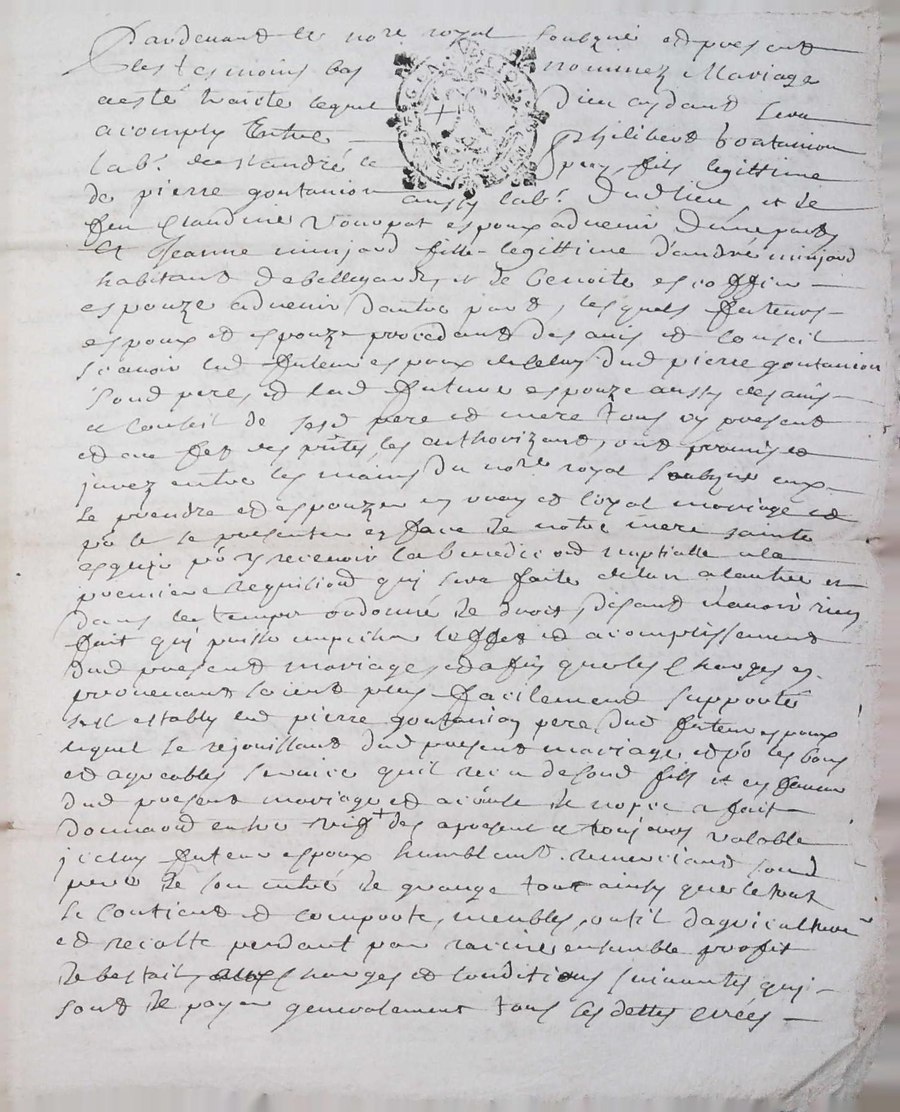 Pardevant le nore royal soubzné et present
les tesmoins bas nommez Mariage
a esté traicté lequel Dieu aydant sera
acomply Entre Philibert goutanion
lab. de st andré le fils legittime
de pierre goutanion aussy lab. Dud lieu et de
feu Claudine espoux advenir Dune part
Et Jeanne minjard fille legittime d'andré minjard
habitant de et de Benoite
espouze advenir dautre part, lesquels futurs
espoux et espouze procedant des avis et conseil
scavoir led futeur espoux de celuy dud pierre goutanion
sond pere, et lad future espouze aussy des avis
et conseil de sesd pere et mere tous icy present
et au fet des pntes les authorizant, ont promis et
jurez entre les mains du nore royal soubzné eux
se prendre et espouzer en vray et loyal mariage et
po ce se presenter en face de notre mere sainte
esglize po y recevoir la benediction nuptialle a la
premiere requisition qui sera faite de lun a lautre et
dans le temps ordonné de droit, disant n'avoir rien
fait qui puisse empecher leffet et acomplissement
dud present mariage, et afin que les charges en
provenant soient plus facilement supporté
sest estably led pierre goutanion pere dud futeur espoux
lequel se rejouissant dud present mariage et po les bons
et agreables service quil recu de sond fils et en faveur
dud present mariage et a cause de nopce a fait
donnaon entre vifs des apresent et toujours valable
jceluy futeur espoux humblemt remerciant sond
pere de son entré de grange tout ainsy que le tout
se contient et comporte, meubles, outil dagriculture
et recolte pendant par racine ensemble profit
de bestail, charges et conditions suivantes qui
sont de payer generalement tous les dettes créés